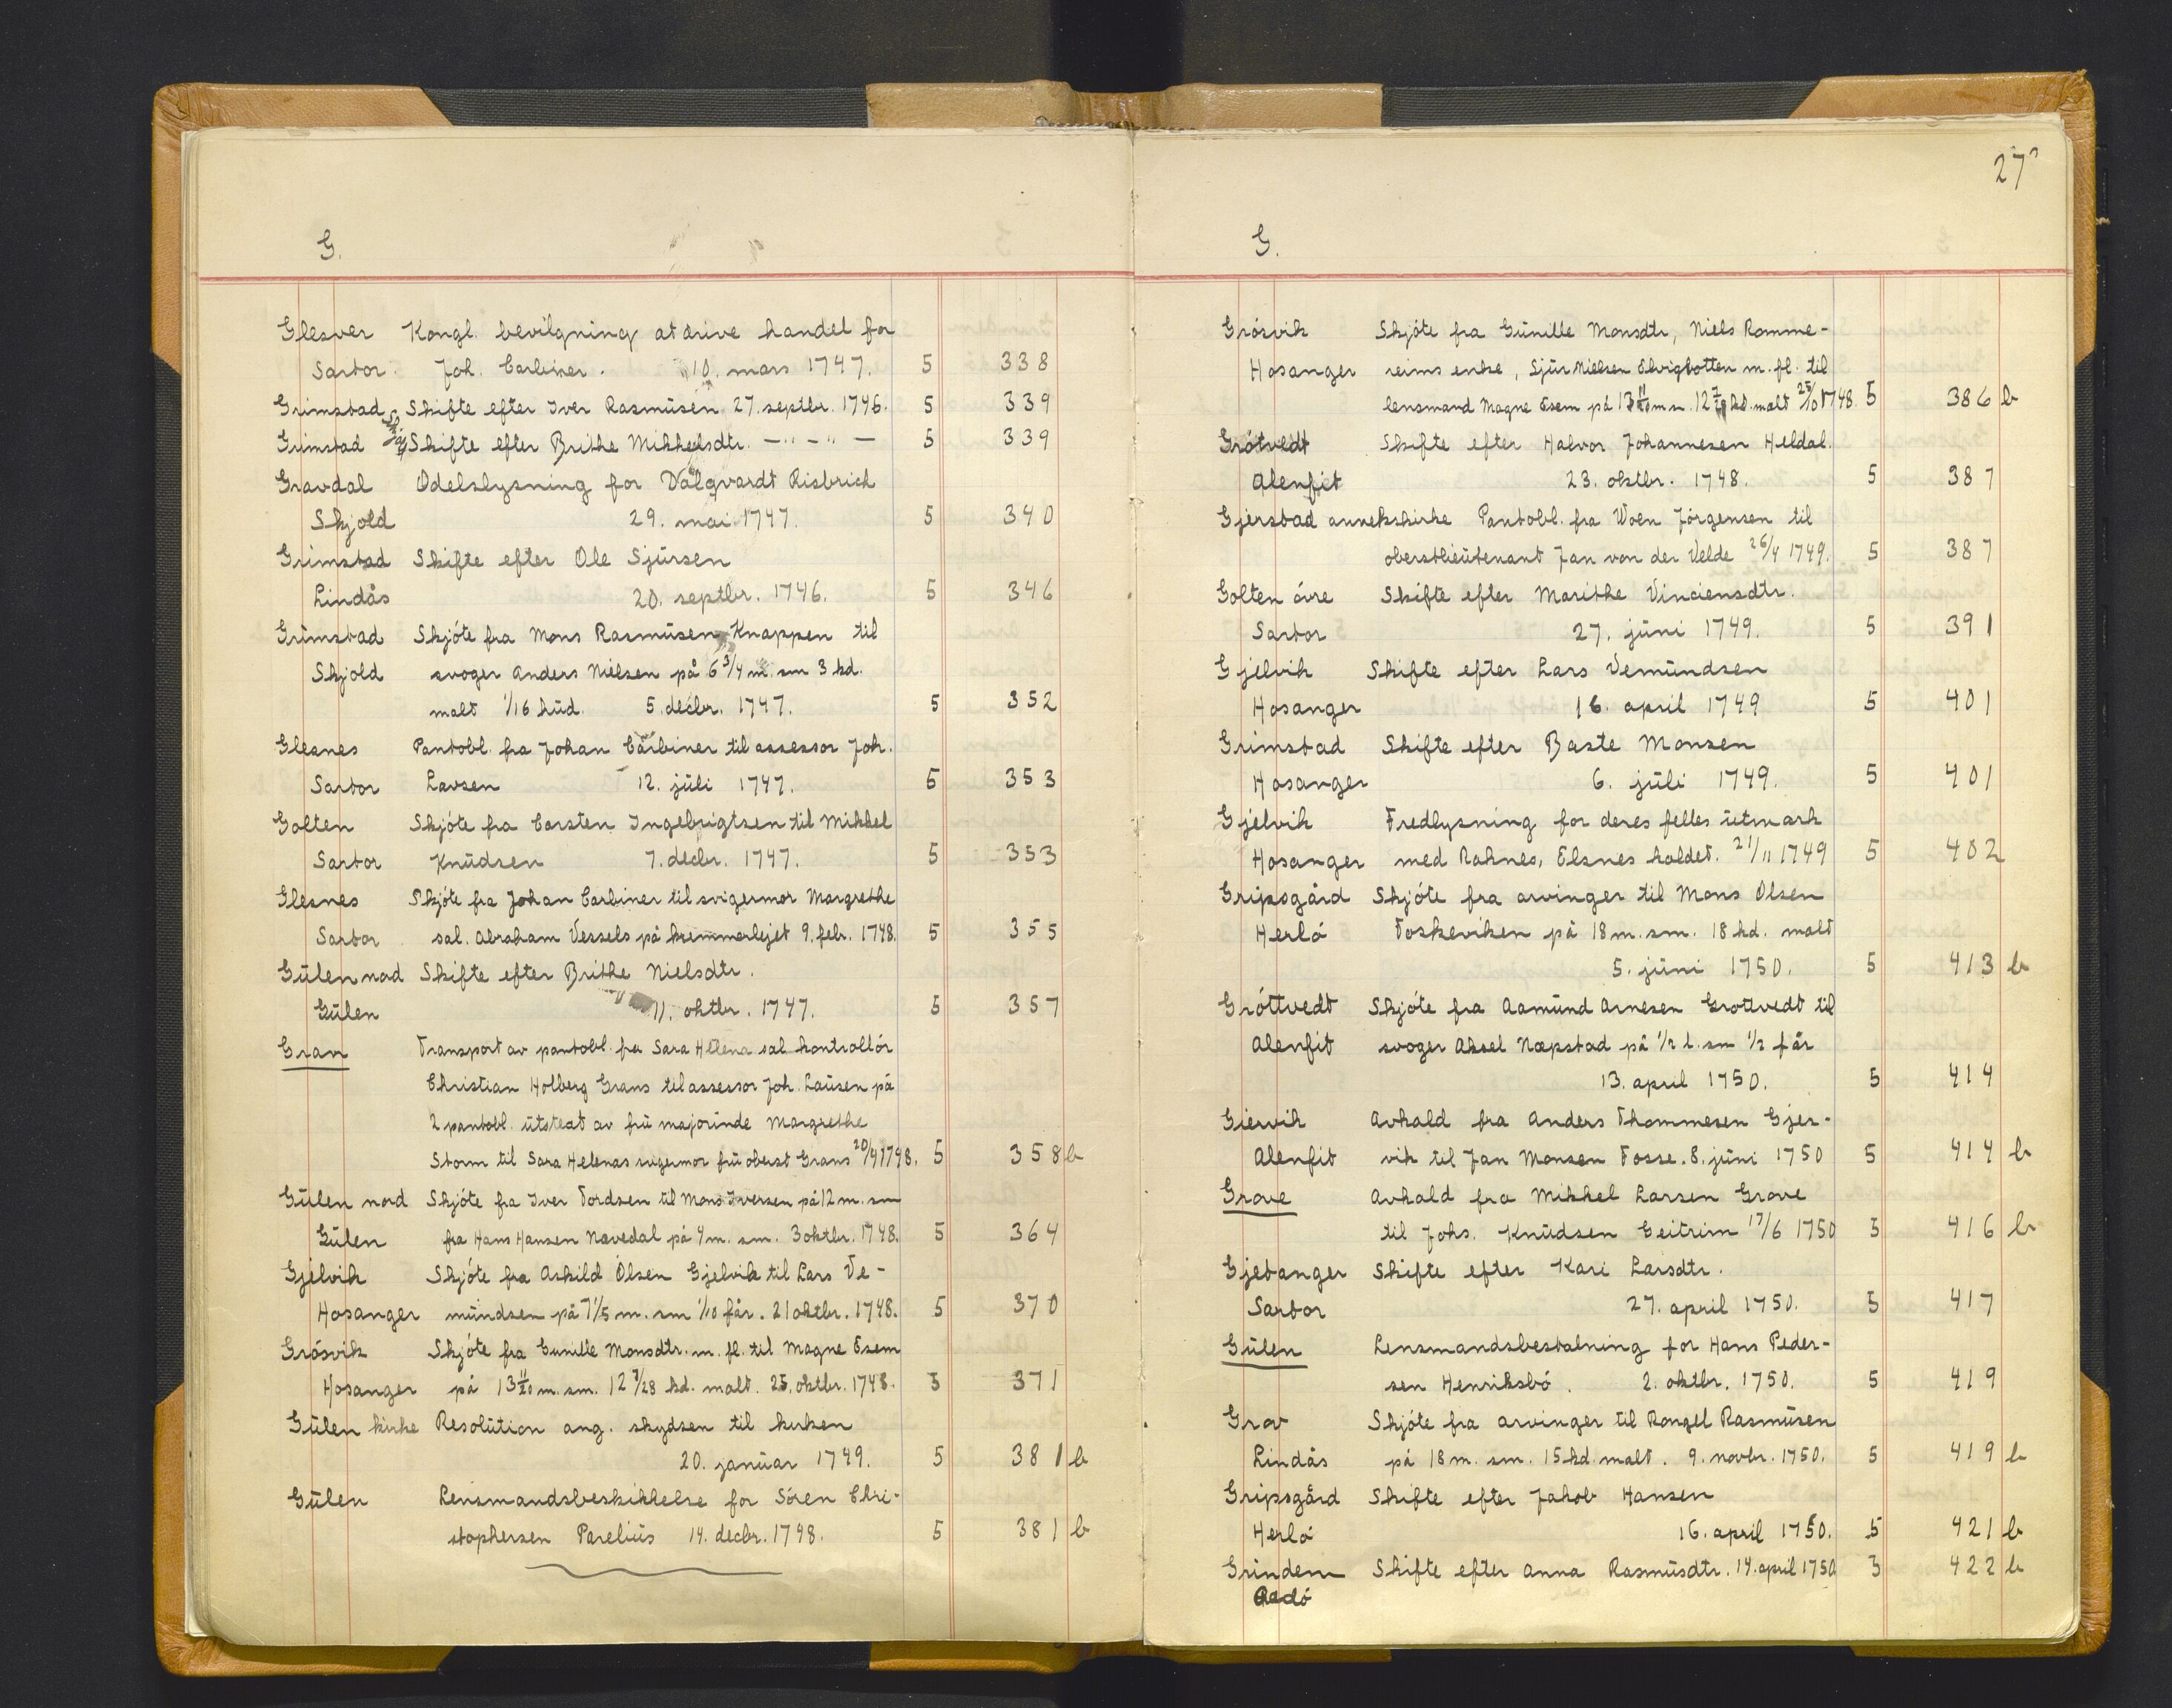 G.
Glesver Kongl. bevilgning at drive handel for
Sartor. Joh. Carbiner. 10. mars 1747. 5 338
Grimstad Skifte efter Iver Rasmüsen 27. septbr. 1746. 5 339
Grimstad Skifte efter Brithe Mikkelsdtr. —"—"— 5 339
Gravdal Odelslysning for Dalqvardt Risbrich
Skjold 29. mai 1747. 5 340
Grimstad Skifte efter Ole Sjürsen
Lindås 20. septbr. 1746. 5 346
Grimstad Skjóte fra Mons Rasmüsen Knappen til
Skjold svoger Anders Nielsen på 6 3/4 m. sm 3 kd.
malt 1/16 hüd. 5. decbr. 1747. 5 352
Glesnes Pantobl. fra Johan Carbiner til assessor Joh.
Sartor Lavsen 12. jüli 1747. 5 353
Golten Skjóte fra Carsten Ingebrigtsen til Mikkel
Sartor Knüdsen 7. decbr. 1747. 5 353
Glesnes Skjóte fra Johan Carbiner til svigermor Margrethe
Sartor sal. Abraham Vessels på kremmerlejet 9. febr. 1748. 5 355
Gülen nad Skifte efter Brithe Nielsdtr.
Gülen 11. oktbr. 1747. 5 357
Gran Transport av pantobl. fra Sara Helena sal kontrollór
Christian Holberg Grans til assessor Joh. Laüsen på
2 pantobl. ütstedt av frü majorinde Margrethe
Storm til Sara Helenas svigermor frü oberst Grans 20/4 1748. 5 358 b
Gülen nord Skjóte fra Iver Tordsen til Mons Iversen på 12 m. sm
Gülen fra Hans Hansen Nævedal på 4 m. sm. 3 oktbr. 1748. 5 364
Gjelvik Skjóte fra Askild Olsen Gjelvik til Lars Ve-
Hosanger mündsen på 7 1/5 m. sm 1/10 får. 21 oktbr. 1748. 5 370
Grósvik Skjóte fra Gunille Monsdtr. m. fl. til Magne Esem
Hosanger på 13 11/20 m. sm. 12 7/28 kd. malt. 25. oktbr. 1748. 5 371
Gülen kirke Resolütion ang. skydsen til kirken
20. janüar 1749. 5 381 b
Gülen Lensmandsbeskikkelse for Sóren Chri-
stophersen Pareliüs 14. decbr. 1748. 5 381 b
27
G.
Grósvik Skjóte fra Günille Monsdtr, Niels Romme-
Hosanger reims enke, Sjür Nielsen Elvigbotten m. fl. til
lensmand Magne Esem på 13 11/20 m sm. 12 7/28 kd. malt 25/10 1748. 5 386 b
Grótvedt Skifte efter Halvor Johannesen Heldal.
Alenfit 23. oktbr. 1748. 5 387
Gjerstad annekskirke Pantobl. fra Woen Jórgensen til
oberstlieütenant Jan von der Velde 26/4 1749. 5 387
Golten óvre Skifte efter Marithe Vinciensdtr.
Sartor 27. jüni 1749. 5 391
Gjelvik Skifte efter Lars Vemündsen
Hosanger 16. april 1749 5 401
Grimstad Skifte efter Baste Monsen
Hosanger 6. jüli 1749. 5 401
Gjelvik Fredlysning for deres felles ütmark
Hosanger med Raknes, Elsnes holdet. 21/11 1749 5 402
Gripsgård Skjóte fra arvinger til Mons Olsen
Herló Toskeviken på 18 m. sm. 18 kd. malt
5. jüni 1750. 5 413 b
Gróttvedt Skjóte fra Aamünd Arnesen Grottvedt til
Alenfit svoger Aksel Næpstad på 1/2 l. sm 1/2 får
13. april 1750. 5 414
Giervik Avkald fra Anders Thommesen Gjer-
Alenfit vik til Jan Monsen Fosse. 8. jüni 1750 5 414 b
Grove Avkald fra Mikkel Larsen Grove
til Johs. Knüdsen Geitrim 17/6 1750 5 416 b
Gjetanger Skifte efter Kari Larsdtr.
Sartor 27. april 1750. 5 417
Gülen Lensmandsbestalning for Hans Peder-
sen Henriksbó. 2. oktbr. 1750. 5 419
Grov Skjóte fra arvinger til Rongel Rasmüsen
Lindås på 18 m. sm. 15 kd. malt. 9. novbr. 1750. 5 419 b
Gripsgård Skifte efter Jakob Hansen
Herló 16. april 1750. 5 421 b
Grindem Skifte efter Anna Rasmüsdtr. 14. april 1750 5 422 b
Radó